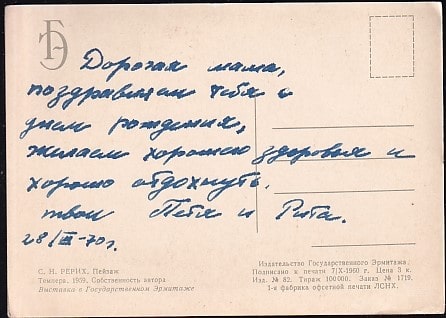 Дорогая мама,
поздравляем тебя с
днем рождения,
желаем хорошего здоровья и
хорошо отдохнуть.
твои Петя и Рита.
28/III-70г.
С. Н. РЕРИХ. Пейзаж
Темпера. 1939. Собственность автора
Выставка в Государственном Эрмитаже
Издательство Государственного Эрмитажа.
Подписано к печати 7/X-1960 г. Цена 3 к.
Изд. № 82. Тираж 100000. Заказ № 1719.
1-я фабрика офсетной печати ЛСНХ.